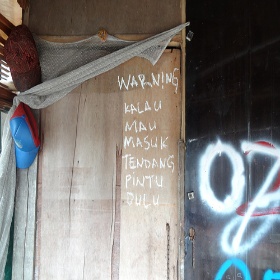 WARNING
KALAU
MAU
MASUK
TENDANG
PINTU
DULU